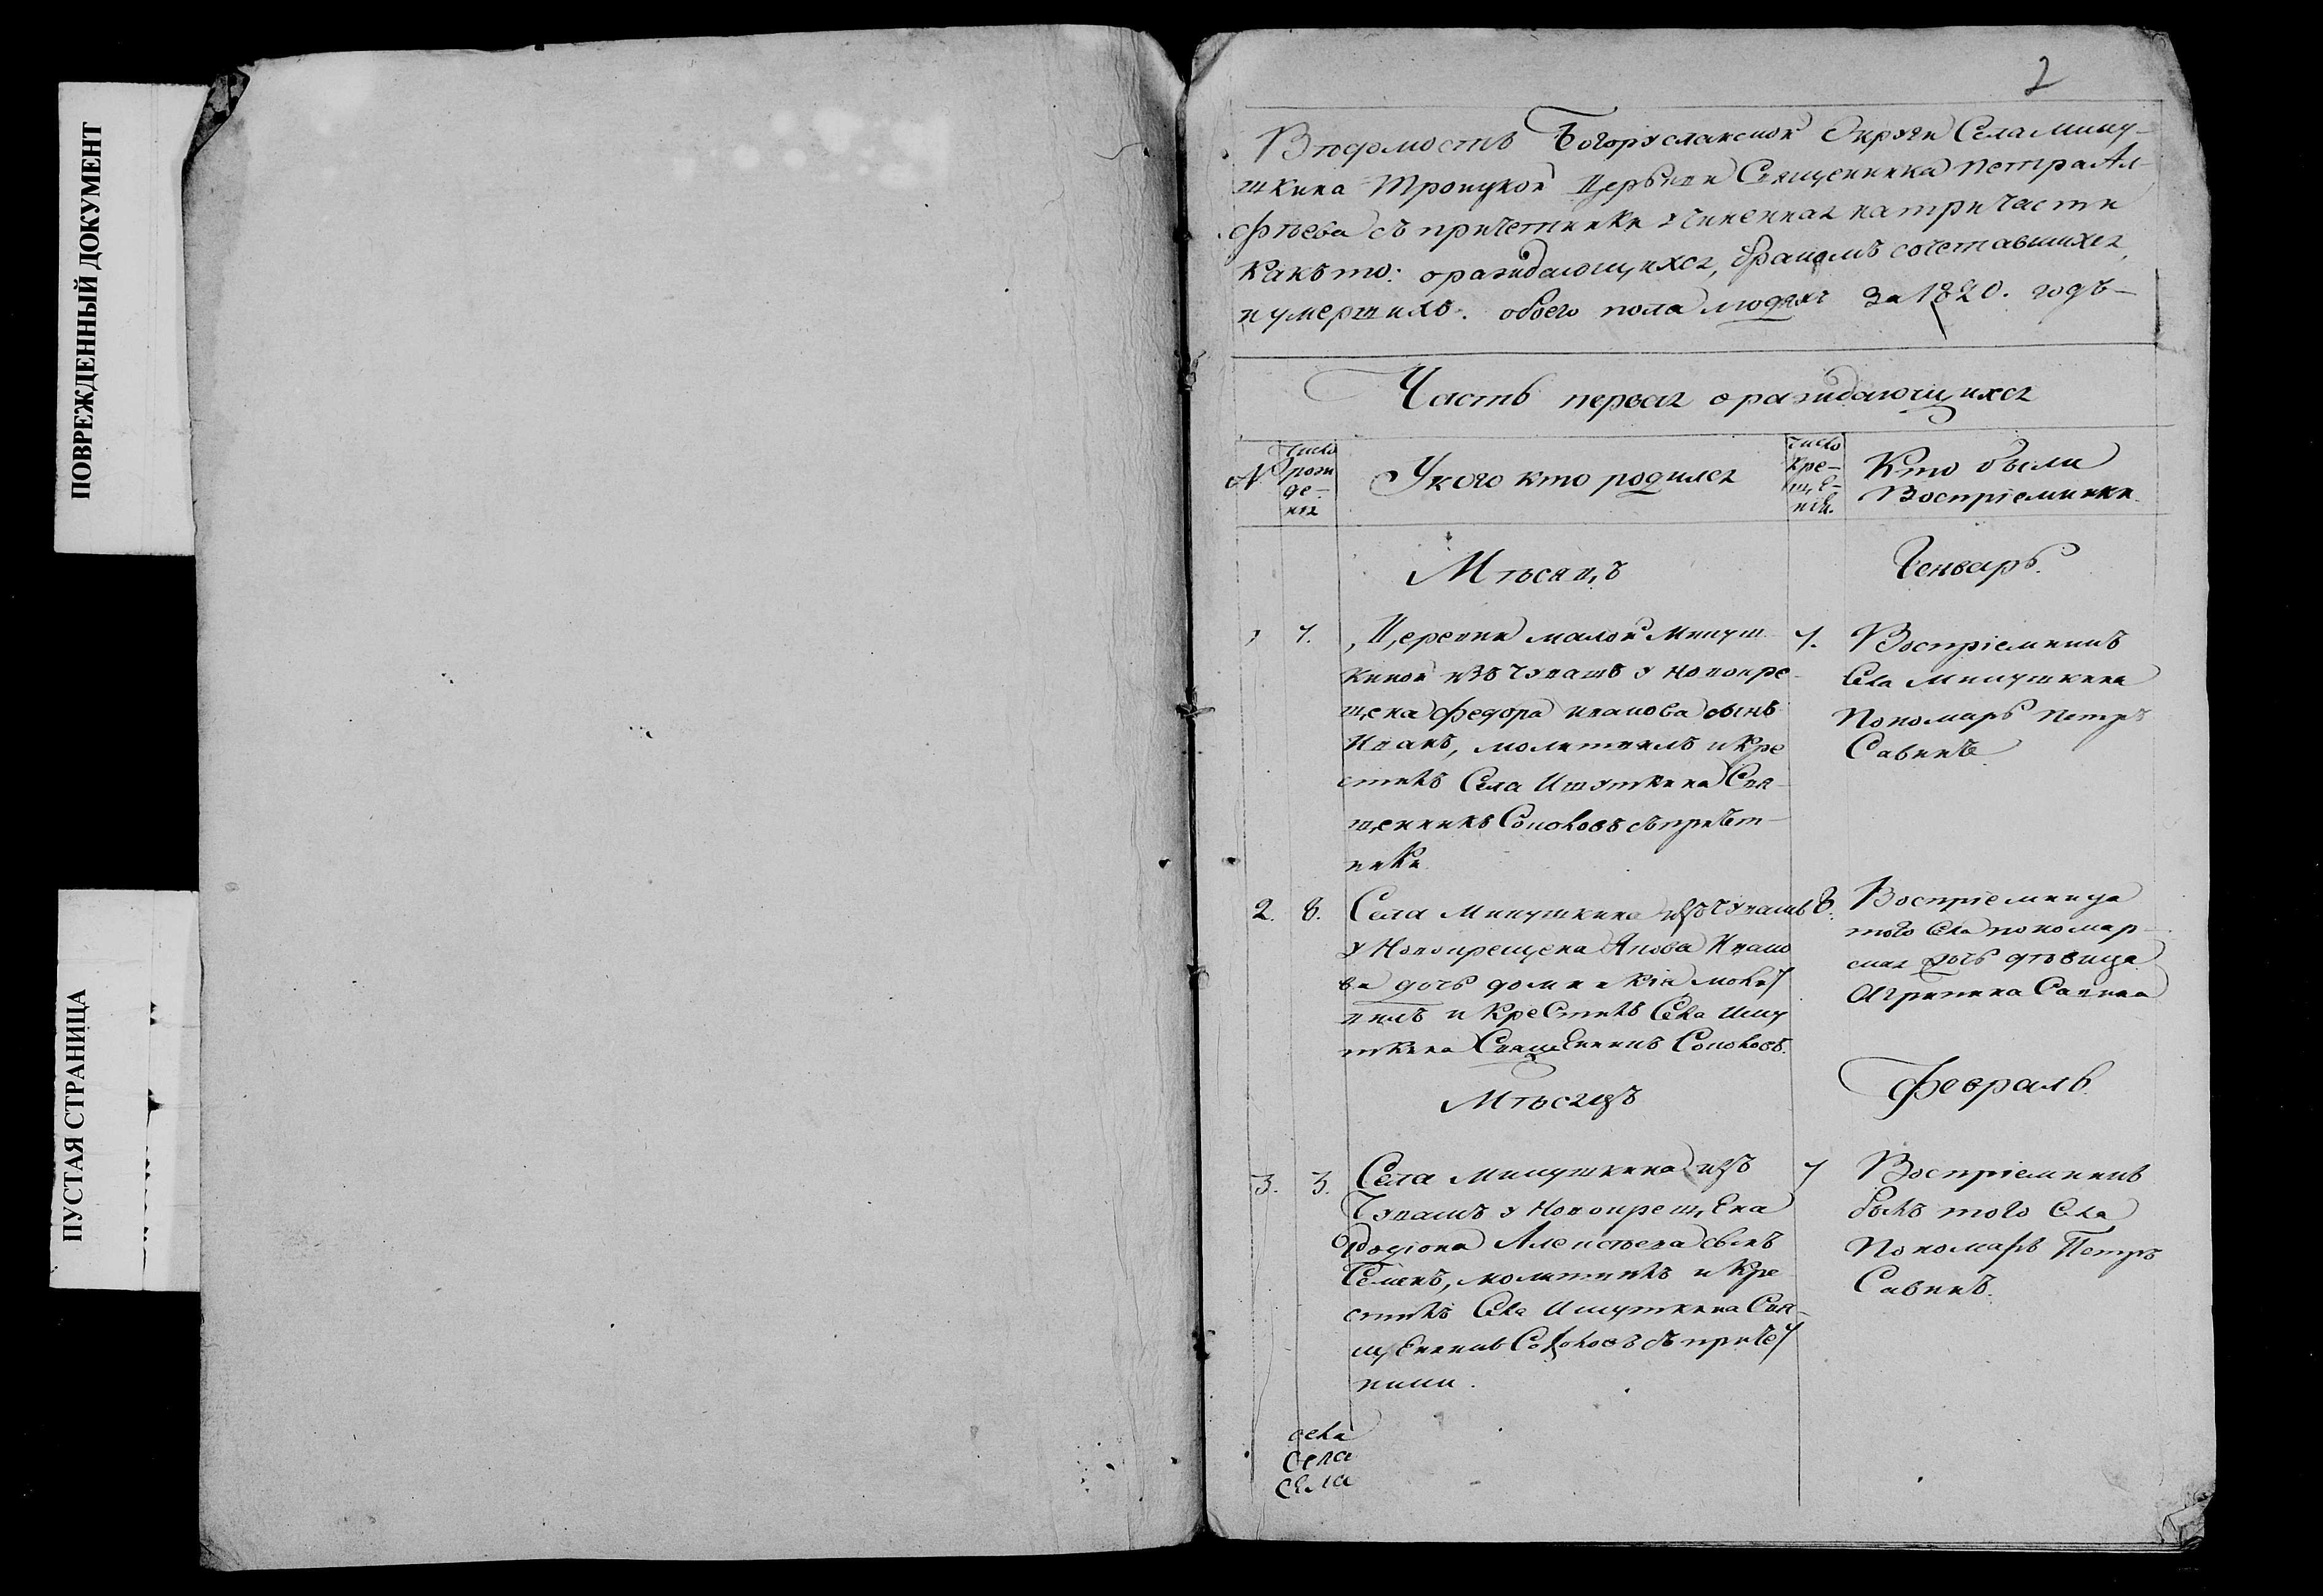 ПОВРЕЖДЕННЫЙ ДОКУМЕНТ
ПУСТАЯ СТРАНИЦА
2
Вѣдомость Богорусланской Округи Села Мику-
шкина Троицкой Церькви Священника Петра Ал-
фѣева съ причетники учиненная на три части
какъ то: о раждающихся, бракомъ сочетавшихся,
и умершихъ. обоего пола людяхъ За 1820. годъ
Часть первая о раждающихся
№
Число
рож
де-
нія
У кого кто родился
число
Кре-
ще-
нія.
Кто были
Воспріемники
Мѣсяцъ
Генварь.
1
7.
Деревни малой Микуш
киной изъ Чувашъ у Новокре
щена Федора Иванова сынъ
Иванъ, молитвилъ и Кре
стилъ Села Ишуткина Свя-
щенникъ Соколовъ съ причет-
ники
7.
Воспріемникъ
Села Микушкина
Пономарь Петръ
Савинъ
2.
8.
Села Микушкина изъ Чувашъ
у Новокрещена Якова Ивано
ва дочь Домникія молит
вилъ и Крестилъ Села Ишу
ткина Священникъ Соколовъ.
8.
Воспріемница
того Села пономар-
ская дочь дѣвица
Агрипина Савина
Мѣсяцъ
Февраль.
3.
3.
Села Микушкина изъ
Чувашъ у Новокрещена
Родіона Алексѣева сынъ
Семенъ, молитвилъ и Кре
стилъ Села Ишуткина Свя-
щенникъ Соколовъ съ причет
ники.
7
Воспріемникъ
былъ того Села
Пономарь Петръ
Савинъ.
села
села
села